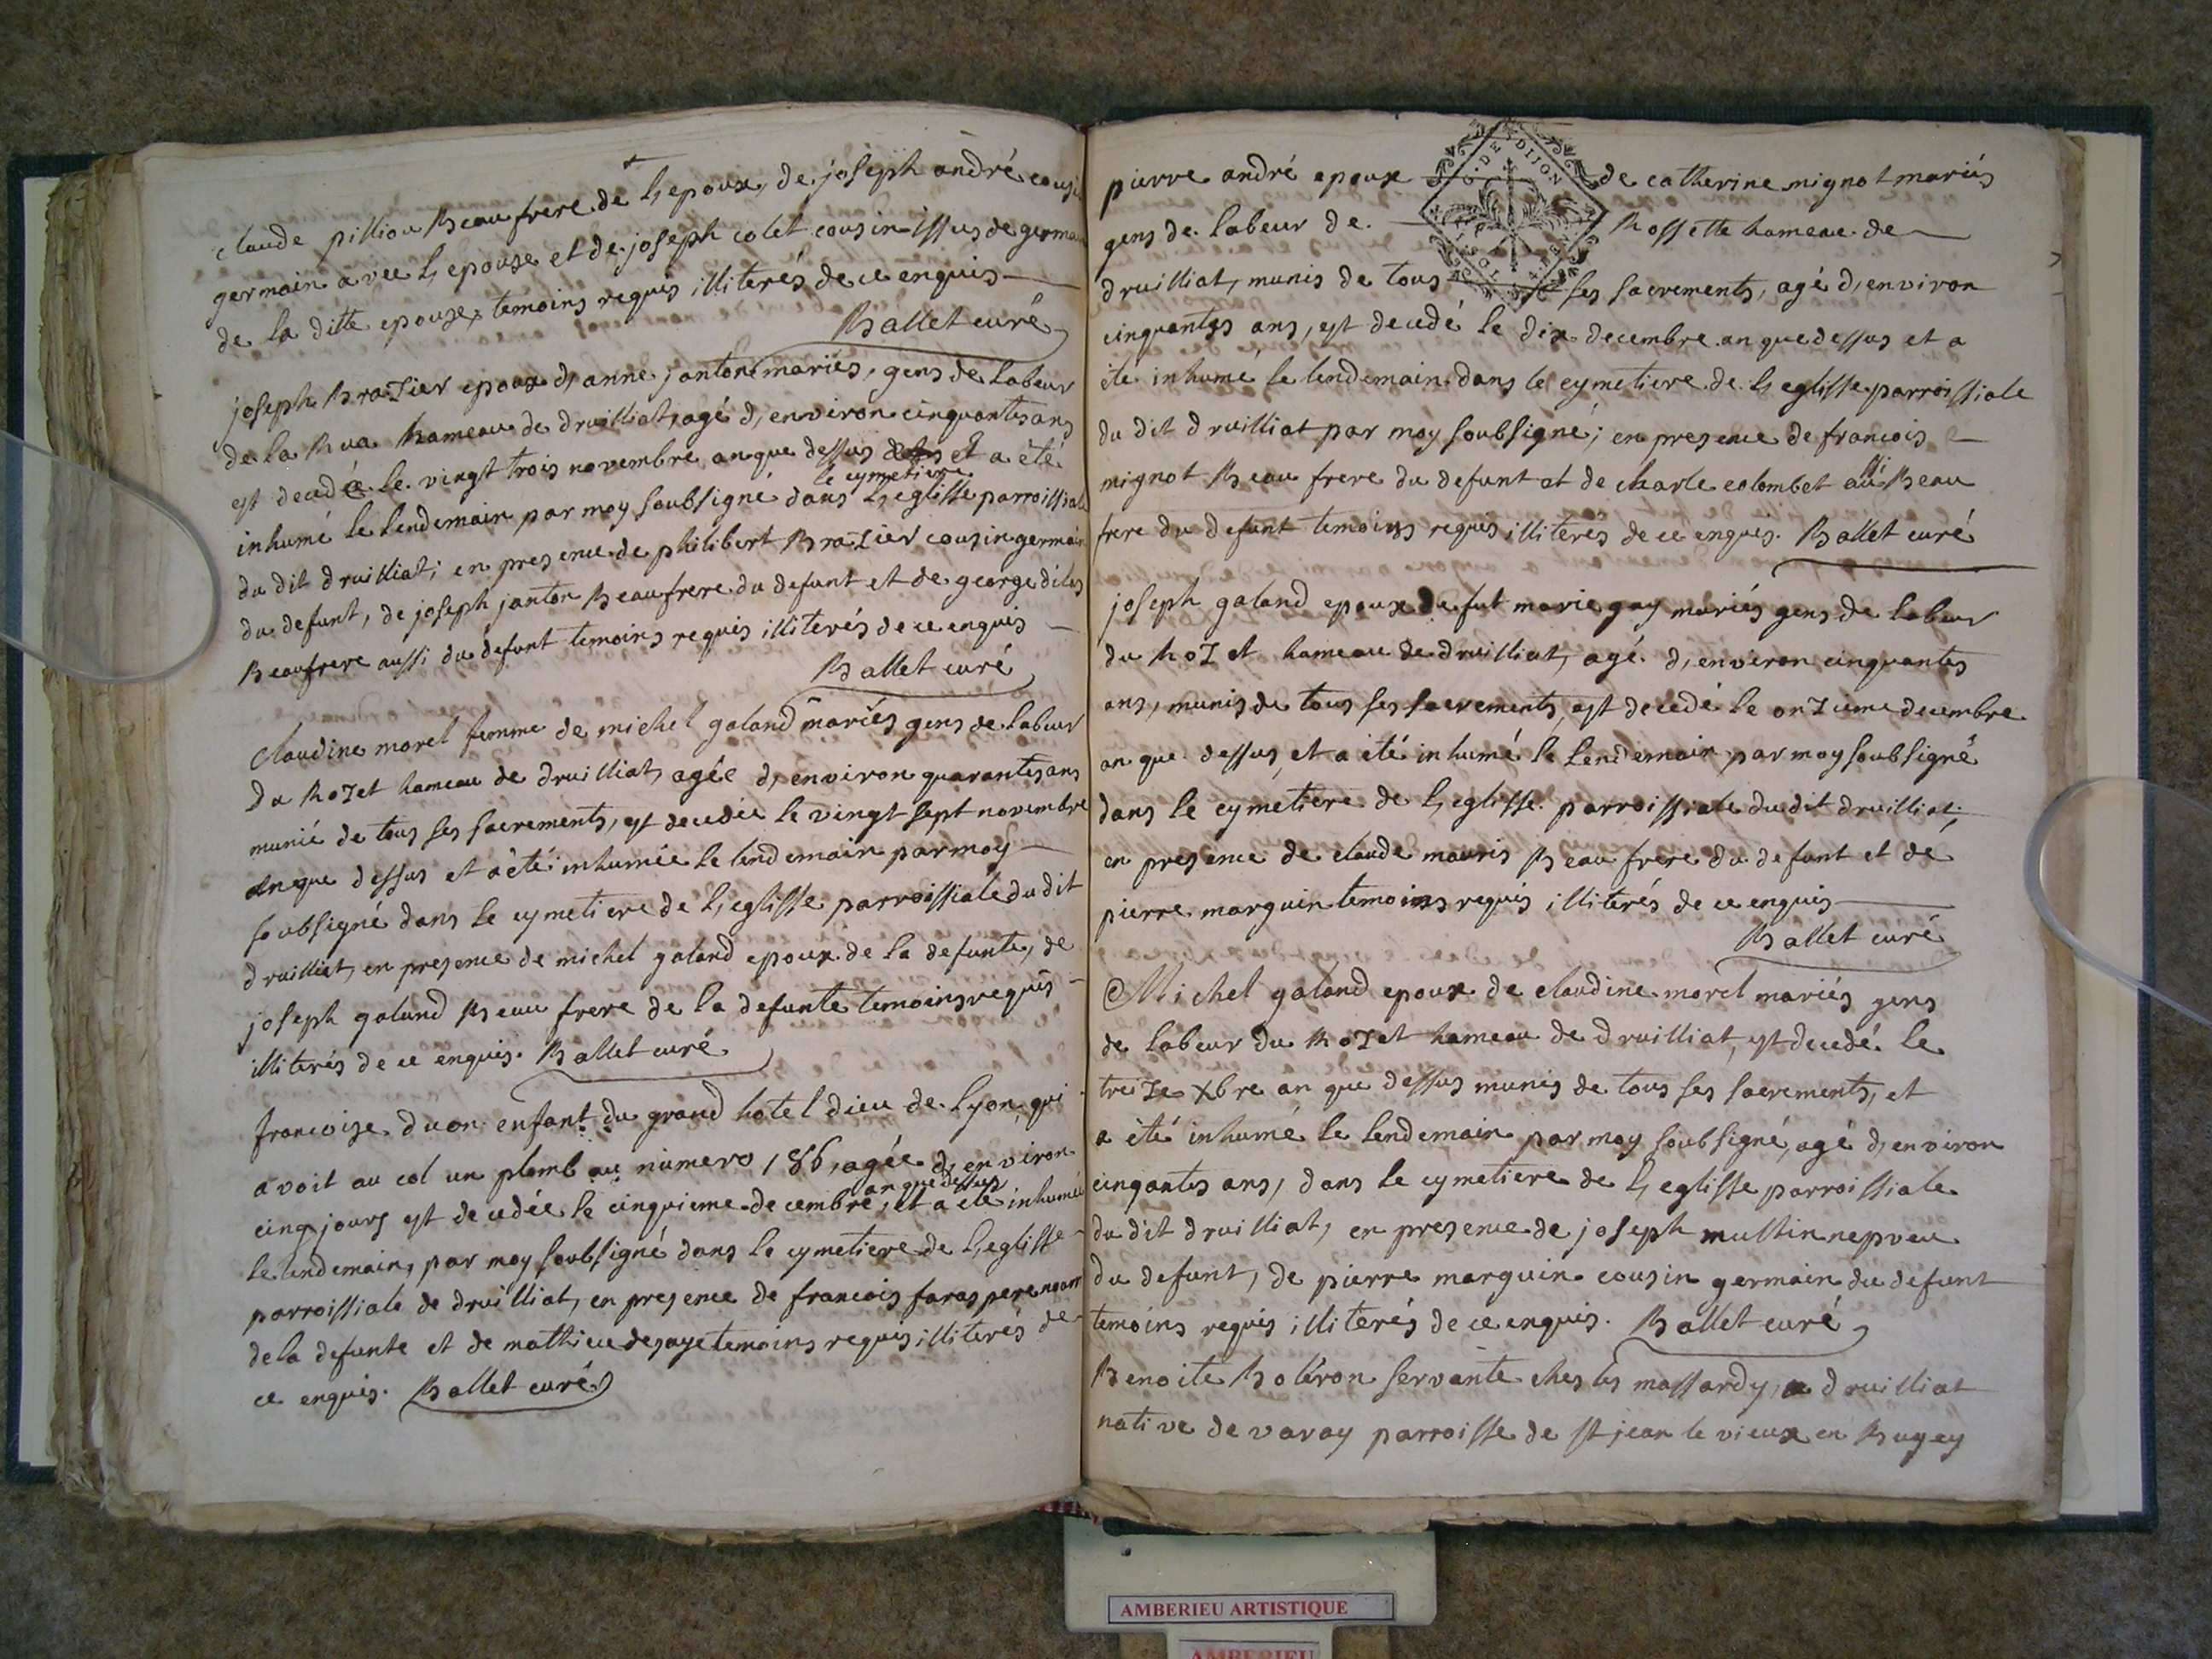 claude pilliou Beaufrere de l,epoux, de joseph andré cousi
germain avec l,epouse et de joseph colet cousin issus de germain
de la ditte epouse, temoins requis illiterés de ce enquis
Ballet curé
joseph Brazier epoux d,anne janton mariés, gens de labeur
de la Rua hameau de druilliat, agé d,environ cinquantes ans
est decedé le vingt trois novembre an que dessus et a été
le cymetiere
inhumé le lendemain par moy soubsigné dans l,eglisse parroissiale
du dit druilliat; en presence de philibert Brazier cousin germain
du defunt, de joseph janton Beaufrere du defunt et de george
Beaufrere aussi du defunt temoins requis illiterés de ce enquis
Ballet curé
Claudine morel femme de michel galand mariés gens de labeur
du Rozet hameau de druilliat, agée d,environ quarantes ans
munie de tous ses sacrements, est decedée le vingt sept novembre
an que dessus et a été inhumée le lendemain par moy
soubsigné dans le cymetiere de l,eglisse parroissiale du dit
druilliat, en presence de michel galand epoux de la defunte, de
joseph galand Beau frere de la defunte temoins requis
illiterés de ce enquis. Ballet curé
francoise duon enfant du grand hotel dieu de Lyon, qui
avoit au col un plomb au numero 186, agée d,environ
an que dessus
cinq jours est decedée le cinquieme decembre, et a été inhumée
le lendemain, par moy soubsigné dans le cymetiere de l,eglisse
parroissiale de druilliat, en presence de francois faras pere nourr
de la defunte et de mathieu desaye temoins requis illiterés de
ce enquis. Ballet curé
G. DE DIJON
pierre andré epoux de catherine mignot mariés
gens de labeur de Rossette hameau de
druilliat, munis de tous ses sacrements, agé d,environ
cinquantes ans, est decedé le dix decembre an que dessus et a
été inhumé le lendemain dans le cymetiere de l,eglisse parroissiale
du dit druilliat par moy soubsigné; en presence de francois
mignot Beau frere du defunt et de charle colombet aussi Beau
frere du defunt temoins requis illiterés de ce enquis. Ballet curé
joseph galand epoux de fut marie gay mariés gens de labeur
du Rozet hameau de druilliat, agé d,environ cinquantes
ans, munis de tous ses sacrements, est decedé le onzieme decembre
an que dessus, et a été inhumé le lendemain par moy soubsigné
dans le cymetiere de l,eglisse parroissiale du dit druilliat;
en presence de claude mauris Beau frere du defunt et de
pierre marguin temoins requis illiterés de ce enquis
Ballet curé
Michel galand epoux de claudine morel mariés gens
de labeur du Rozet hameau de druilliat, est decedé le
treize Xbre an que dessus munis de tous ses sacrements, et
a été inhumé le lendemain par moy soubsigné, agé d,environ
cinqantes ans, dans le cymetiere de l,eglisse parroissiale
du dit druilliat, en presence de joseph multin nepveu
du defunt, de pierre marguin cousin germain du defunt
temoins requis illiterés de ce enquis. Ballet curé
Benoite Boléron servante ches les massardy, a druilliat
native de varay parroisse de st jean le vieux en Bugey
AMBERIEU ARTISTIQUE
AMBERIEU